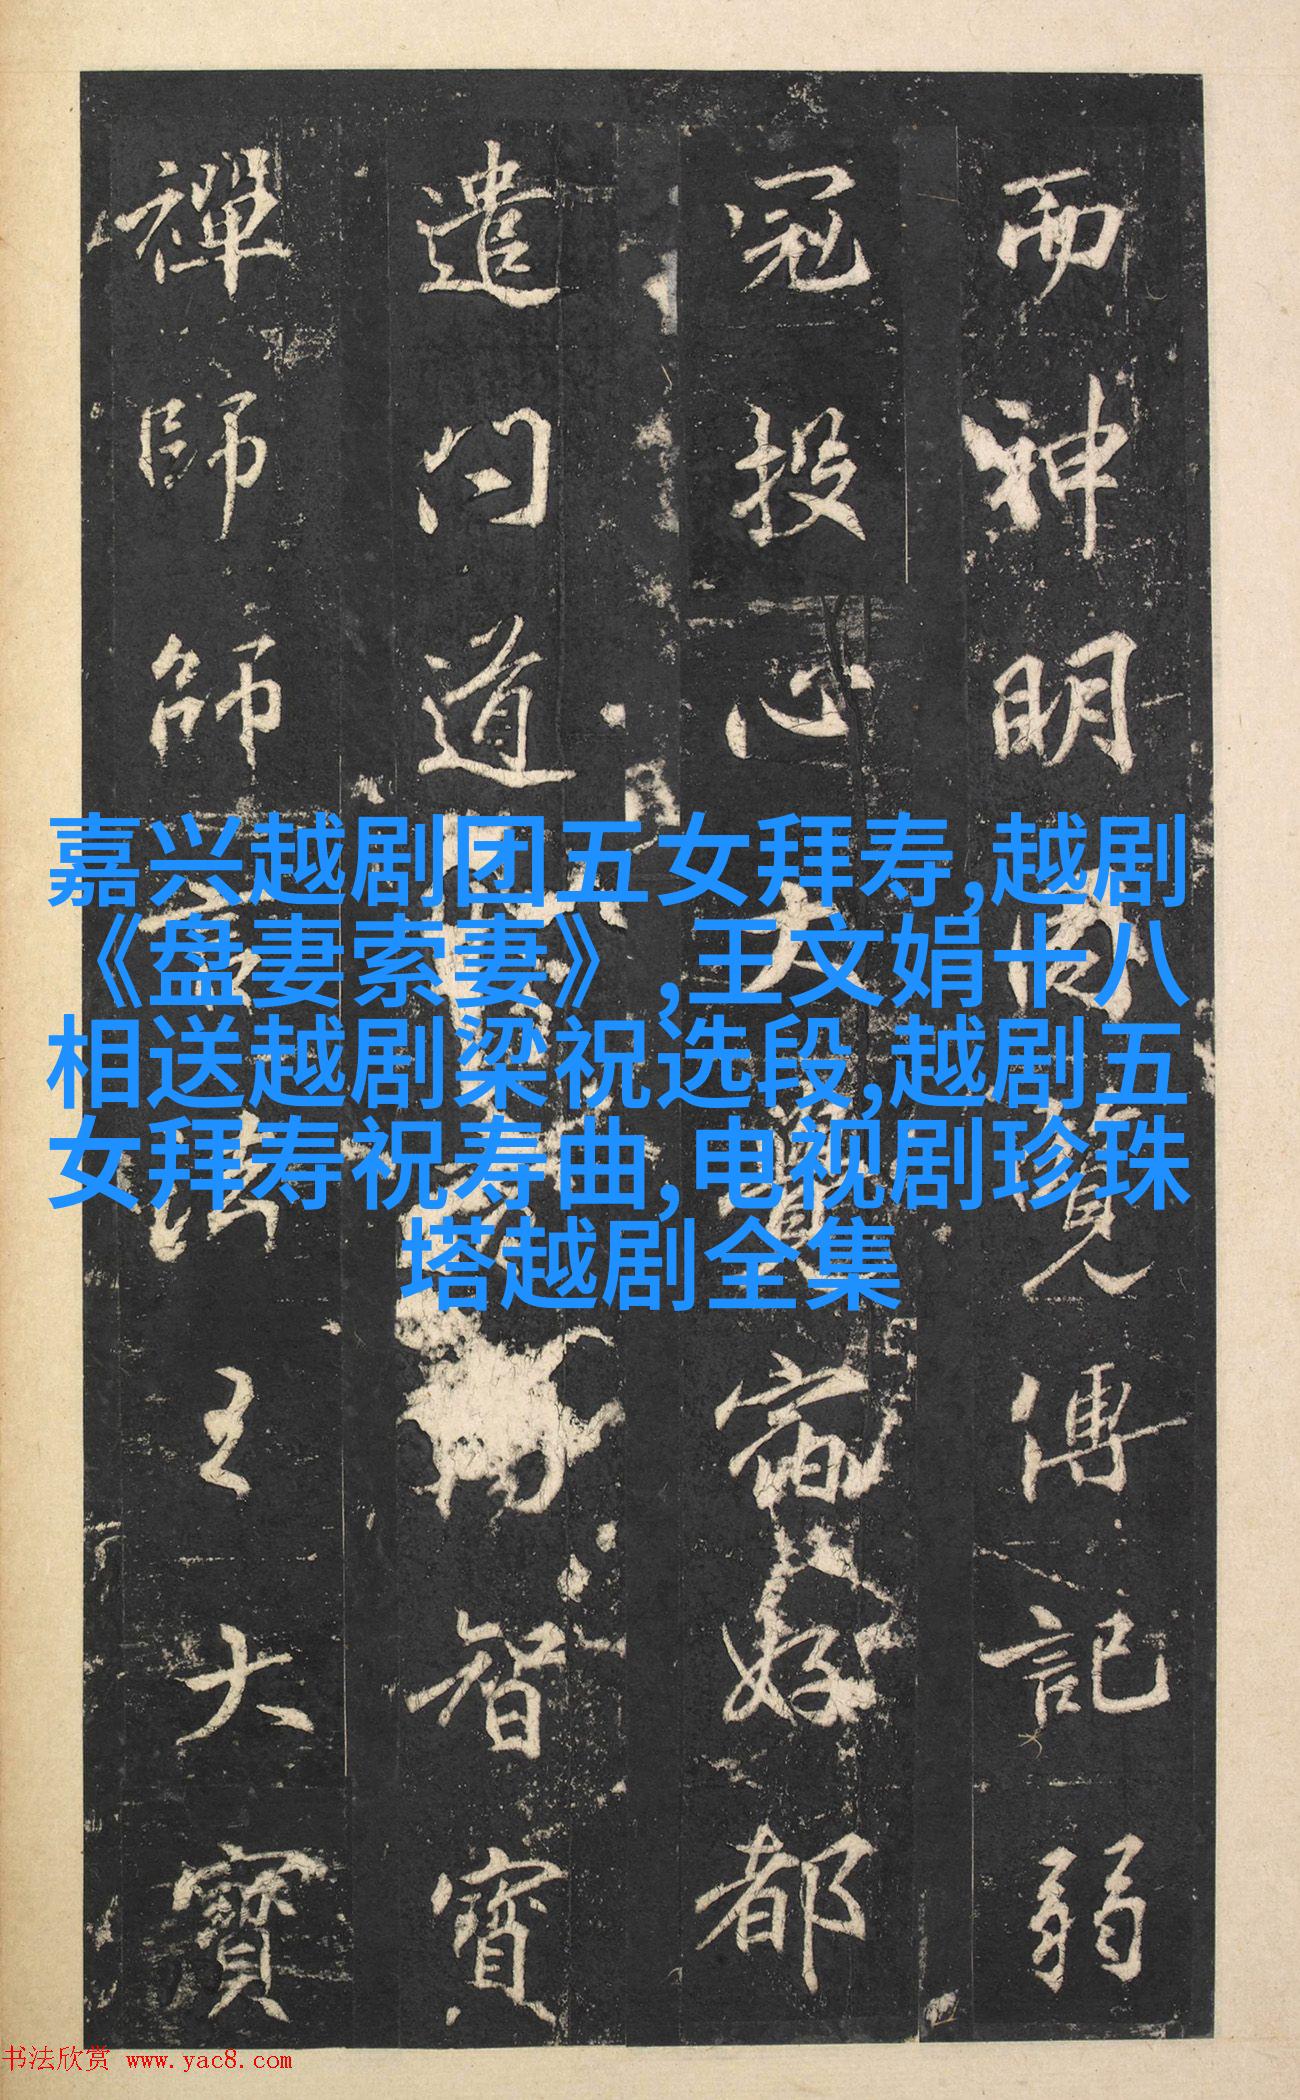 而神明覽傳記弱
冠投心大覺宿好都
遣問道智寶
禪師師法王大寶
嘉兴越剧团五女拜寿,越剧
《盘妻索妻》,王文娟十八
相送越剧梁祝选段,越剧五
女拜寿祝寿曲,电视剧珍珠
塔越剧全集
书法欣赏 www.yac8.com